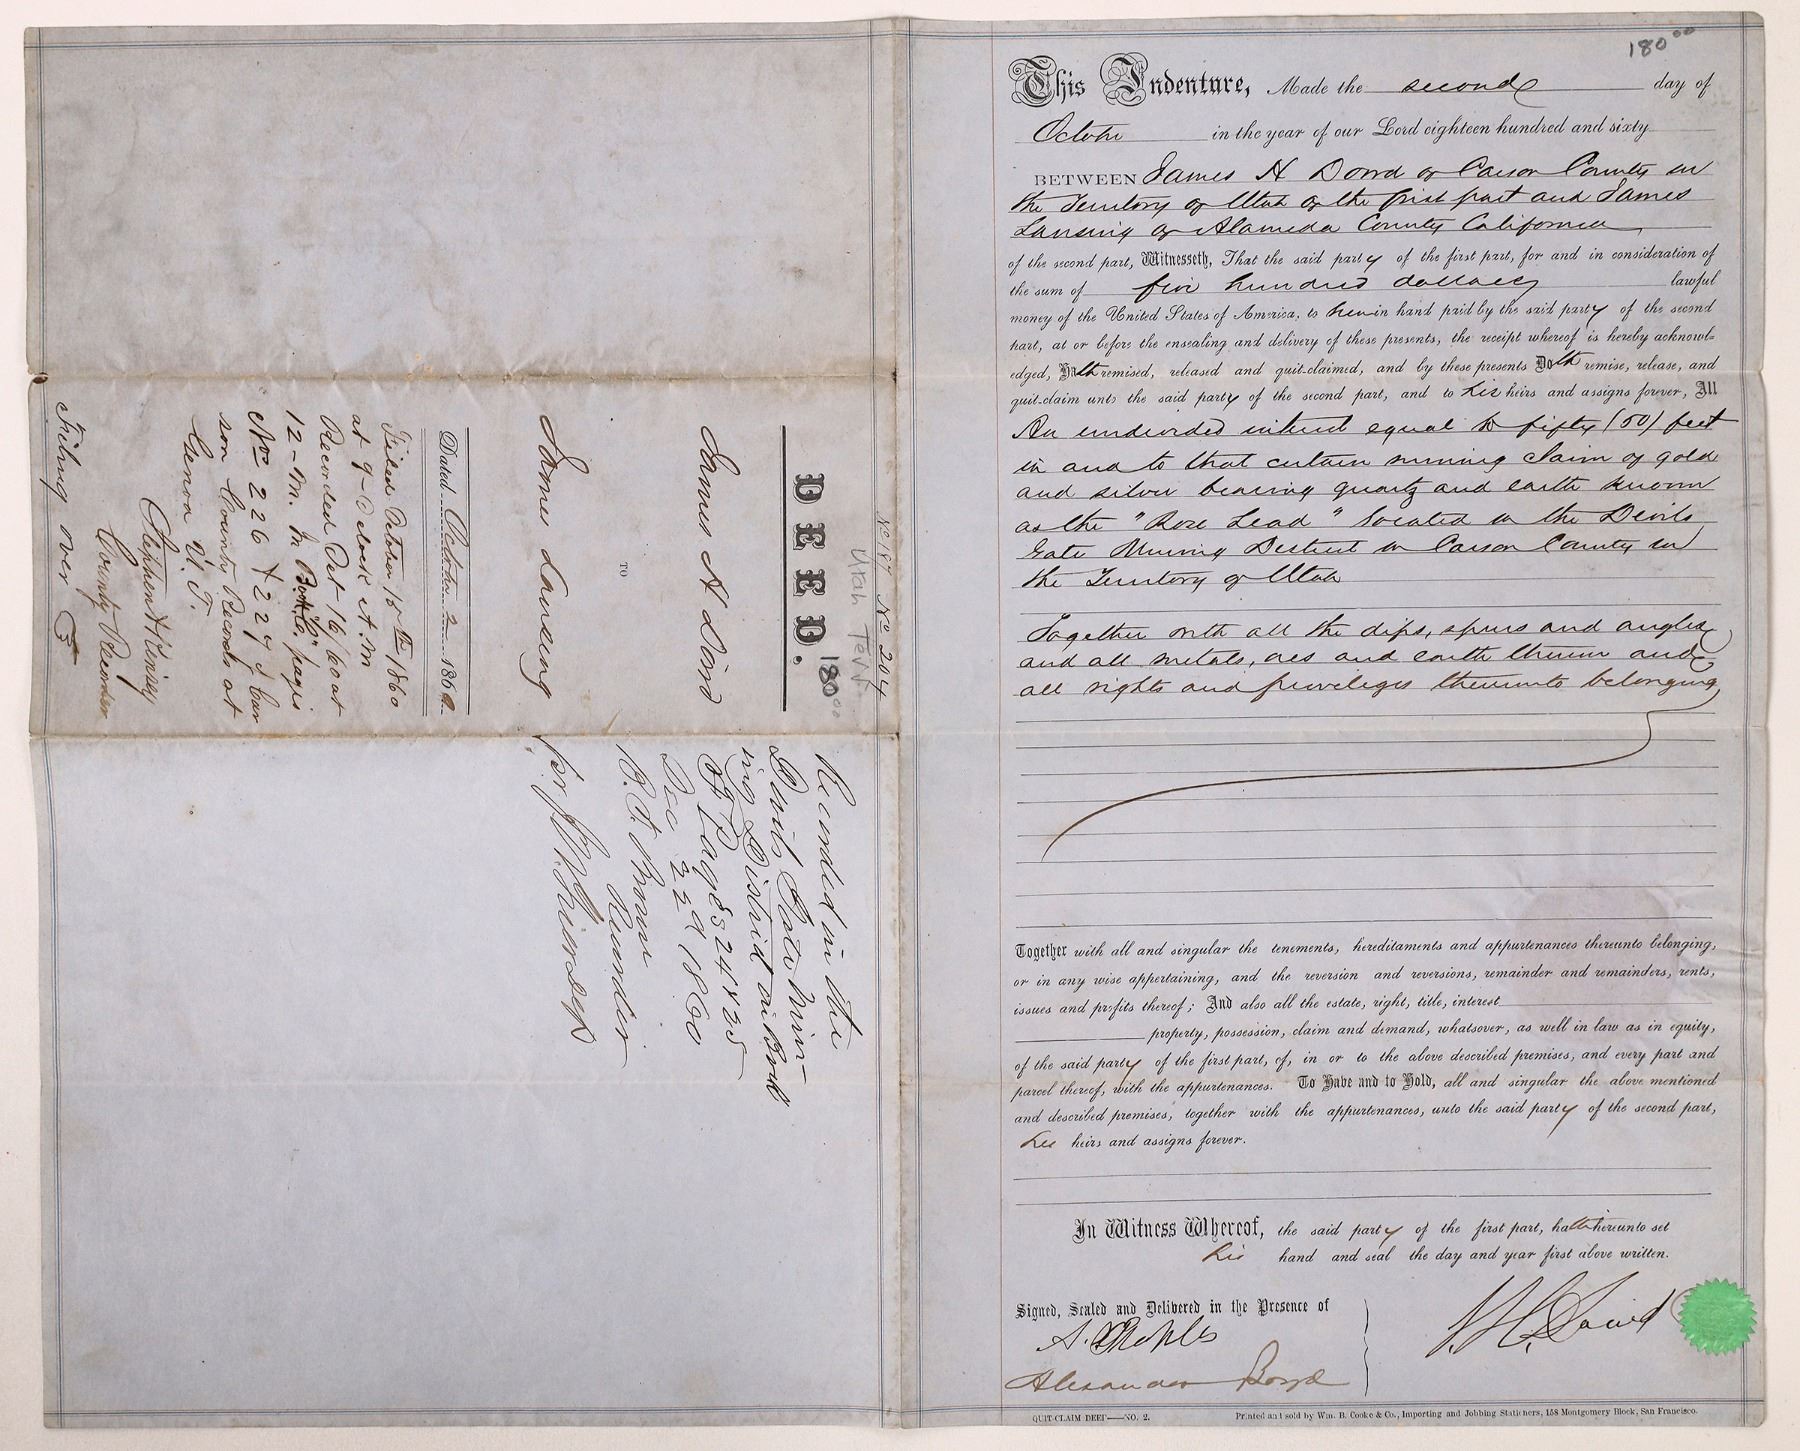 180 00
This Indenture, Made the second day of
October in the year of our Lord eighteen hundred and sixty
BETWEEN James H of Carson County in
the Territory of Utah of the first part and James
Lansing of Alameda County California
of the second part, Witnesseth, That the said party of the first part, for and in consideration of
the sum of five hundred dollars lawful
money of the United States of America, to him in hand paid by the said party of the second
part, at or before the ensealing and delivery of these presents, the receipt whereof is hereby acknowl-
edged, Hath remised, released and quit-claimed, and by these presents Doth remise, release, and
quit-claim unto the said party of the second part, and to his heirs and assigns forever, All
An undivided interest equal to fifty (50) feet
in and to that certain mining claim of gold
and silver bearing quartz and earth known
as the "Rose Lead" located in the Devils
Gate Mining District in Carson County in
the Territory of Utah
Together with all the dips, spurs and angles
and all metals, ores and earth therein and
all rights and priveleges thereunto belonging
Together with all and singular the tenements, hereditaments and appurtenances thereunto belonging,
or in any wise appertaining, and the reversion and reversions, remainder and remainders, rents,
issues and profits thereof; And also all the estate, right, title, interest
property, possession, claim and demand, whatsover, as well in law as in equity,
of the said party of the first part, of, in or to the above described premises, and every part and
parcel thereof, with the appurtenances. To Have and to Hold, all and singular the above mentioned
and described premises, together with the appurtenances, unto the said party of the second part,
his heirs and assigns forever.
In Witness Whereof, the said party of the first part, hath hereunto set
his hand and seal the day and year first above written.
Signed, Sealed and Delivered in the Presence of
Alexander Boyd
QUIT-CLAIM DEED—NO. 2.
Printed and sold by Wm. B. Cooke & Co., Importing and Jobbing Stationers, 158 Montgomery Block, San Francisco.
No 187 No 204
Utah Terr
180 00
DEED.
James H
TO
James Lansing
Dated October 2 1860
Filed October 15th 1860
at 9 O clock A.M
Recorded Oct 16/60 at
12 - M. In Book "C" pages
Nos 226 & 227 of Car
son County Records at
Genoa U. T.
Stephen A Kinsey
County Recorder
Filing over
Recorded in the
Devils Gate Min-
ing District in Book
A Pages 24 & 25
Dec 22d 1860
Recorder